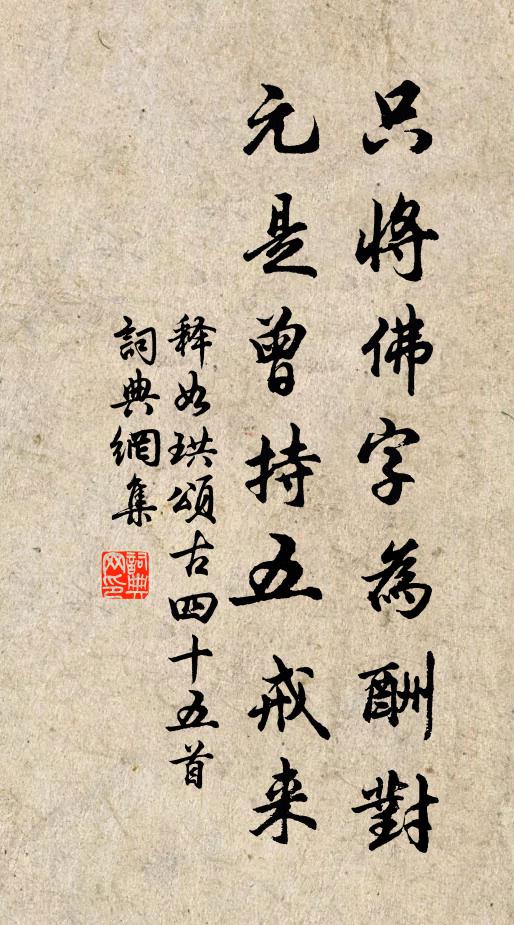 只將佛字為酬對
元是曾持五戒来
释如珙頌古四十五首
詞典網集
詞典網印